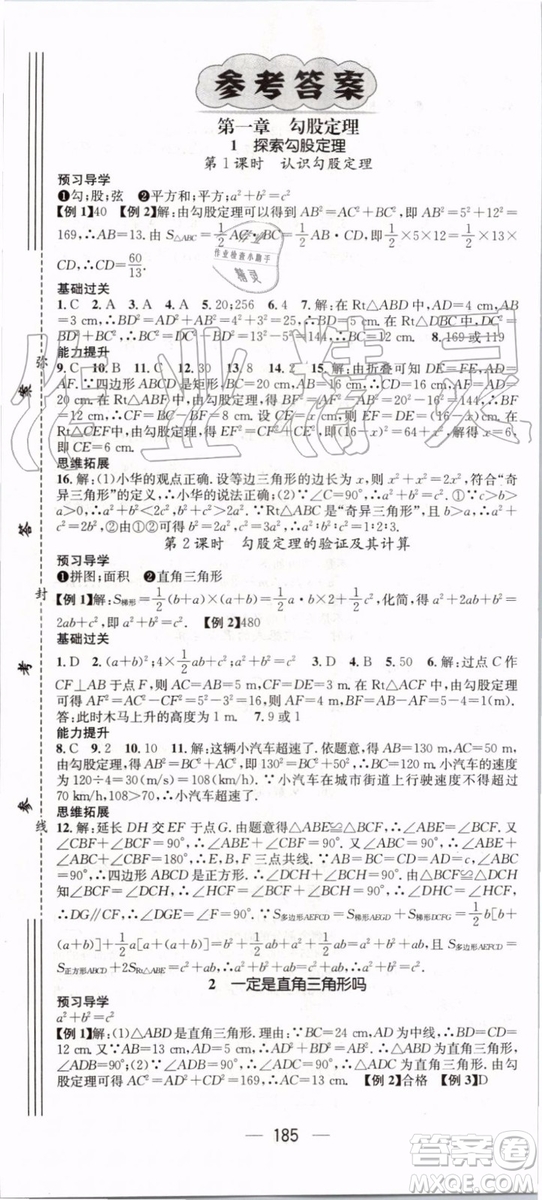 参考答案
第一章　勾股定理
1　探索勾股定理
第1课时　认识勾股定理
预习导学
❶勾;股;弦　❷平方和;平方;a²+b²=c²
【例1】40　【例2】解:由勾股定理可以得到 AB²=AC²+BC²=5²+12²=
169,∴AB=13. 由 S△ABC=1/2 AC·BC=1/2 AB·CD,即 1/2×5×12=1/2×13×
CD,∴CD=60/13.
基础过关
1. C　2. A　3. A　4. A　5. 20;256　6. 4　7. 解:在 Rt△ABD 中,AD=4 cm,AB
=3 cm,∴BD²=AD²+AB²=4²+3²=25,∴BD=5 cm. 在 Rt△DBC 中,CD²=
BD²+BC²=5²+12²=169,∴CD=13 cm.　8. 169 或 119
能力提升
9. C　10. B　11. C　12. 30　13. 8　14. 2　15. 解:由折叠可知 DE=EF,AD=
AF. ∵四边形 ABCD 是矩形,BC=20 cm,AB=16 cm,∴CD=16 cm,AD=
AF=20 cm. 在 Rt△ABF 中,由勾股定理得 BF²=AF²-AB²=144,∴BF=
12 cm,∴CF=BC-BF=8 cm. 设 CE=x cm,则 EF=DE=(16-x) cm. 在
Rt△CEF 中,由勾股定理得 EF²=CF²+CE²,即(16-x)²=64+x²,解得 x=6,
即 CE=6 cm.
思维拓展
16. 解:(1)小华的观点正确. 设等边三角形的边长为 x,∵x²+x²=2x²,符合“奇
异三角形”的定义,∴小华的说法正确;(2)∵∠C=90°,∴a²+b²=c². ①∵c>b
>a,∴a²+c²>b²,a²+b²<2c². ∵Rt△ABC 是“奇异三角形”,∴a²+c²=2b². ②
由①②得 a²:b²:c²=1:2:3.
第2课时　勾股定理的验证及其计算
预习导学
❶拼图;面积　❷直角三角形
【例1】解:S梯形=1/2(b+a)×(b+a)=1/2ab×2+1/2c²,化简,得 a²+b²+2ab=
2ab+c²,∴a²+b²=c².　【例2】480
基础过关
1. D　2. (a+b)²;4×1/2ab+c²;a²+b²=c²　3. D　4. B　5. 50　6. 解:过点 C 作
CF⊥AB 于点 F,根据题意得 AC=AB=5 m,CF=DE=3 m. 在 Rt△ACF 中,
由勾股定理得 AF²=AC²-CF²=5²-3²=16,∴AF=4 m,∴BF=AB-AF=1 m.
答:此时木马上升的高度为 1 m.　7. 9 或 1
能力提升
8. C　9. 2　10. 10　11. 解:这辆小汽车超速了. 依题意,得 AB=130 m,AC=50 m,
由勾股定理得 AB²=BC²+AC²,即 130²=BC²+50²,∴BC=120 m,∴小汽车的速度为
120÷4=30(m/s)=108(km/h). ∵小汽车在城市街道上行驶速度不得超过
70 km/h,108>70,∴小汽车超速了.
思维拓展
12. 解:延长 DH 交 EF 于点 G. 由题意得△ABE≌△BCF,∴∠ABE=∠BCF. 又
∵∠CBF+∠BCF=90°,∴∠CBF+∠ABE=90°. 又∵∠ABC=90°,∴∠ABE+∠ABC
+∠CBF=180°,∴E,B,F 三点共线. ∵∠ABC=90°,AB=BC=CD=DA=
c,∴四边形 ABCD 是正方形,易证△CDH≌△BCF,∴∠DHC=∠F=90°,
∴DG∥CF,∴∠DGE=∠F=90°. ∵S多边形AEFCD=S梯形AEGD+S梯形DGFC=1/2b[b+
(a+b)]+1/2a[a+(a+b)]=1/2b²+1/2ab+1/2b²+1/2a²+1/2a²+1/2ab=b²+a²+ab,S多边形AEFCD=
S正方形ABCD+2SRt△ABE=c²+ab,∴a²+b²+ab=c²+ab,∴a²+b²=c².
2　一定是直角三角形吗
预习导学
a²+b²=c²
【例1】解:(1)△ABD 是直角三角形. 理由:∵BC=24 cm,AD 为中线,∴BD=
12 cm. ∵AD=5 cm,AB=13 cm,∴AD²+BD²=AB²,∴△ABD 是直角三角
形;(2)∵△ABD 是直角三角形,∴∠ADB=90°,∴∠ADC=90°. ∵CD=12 cm,由
勾股定理可得 AC²=AD²+CD²=169,∴AC=13 cm.　【例2】合格　【例3】D
185
弥
封
线
参
考
答
案
作业精灵
作业检查小助手
精灵
答案卷